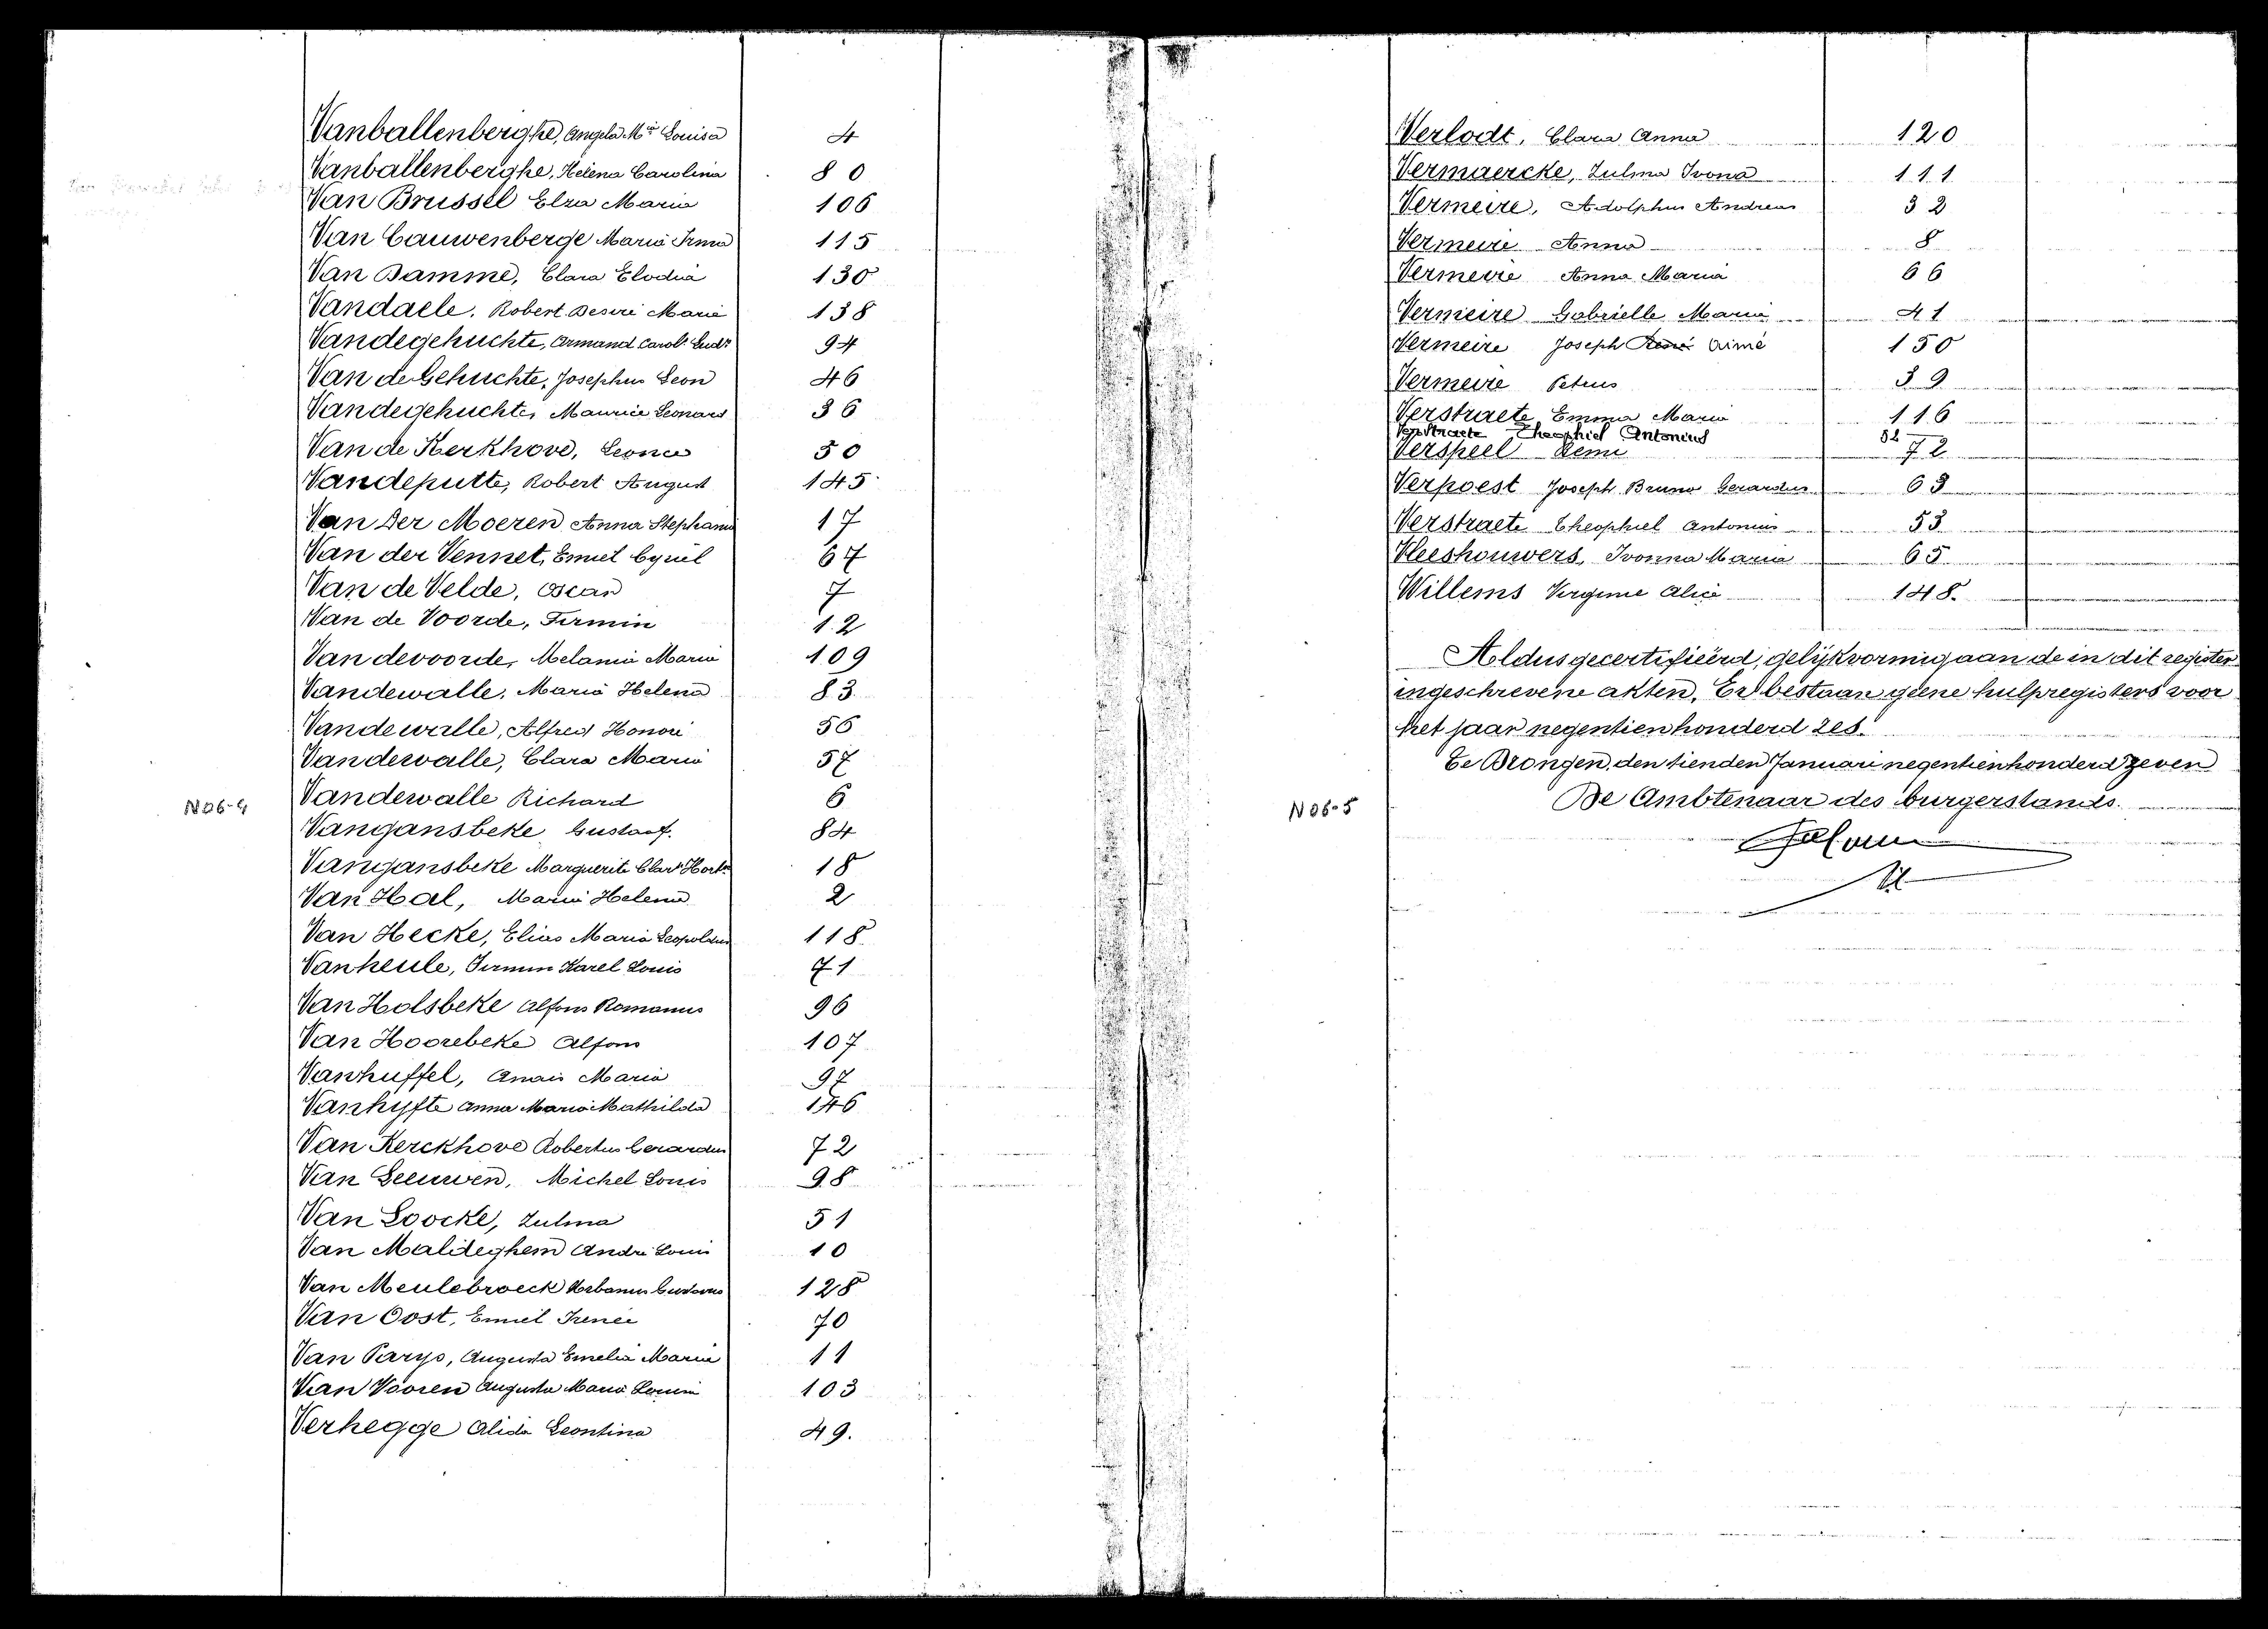 Vanballenberghe, Angela Mia Louisa 4
Vanballenberghe, Helena Carolina 80
Van Brussel Elza Maria 106
Van Cauwenberge Maria Irma 115
Van Damme, Clara Elodia 130
Vandaele, Robert Desiré Marie 138
Vandegehuchte, Armand Carols Ludv 94
Van de Gehuchte, Josephus Leon 46
Vandegehuchte, Maurice Leonard 36
Van de Kerkhove, Leonce 50
Vandeputte, Robert August 145
Van Der Moeren Anna Stephania 17
Van der Vennet, Emiel Cyriel 67
Van de Velde, Oscar 7
Van de Voorde, Firmin 12
Vandevoorde, Melania Maria 109
Vandewalle, Maria Helena 83
Vandewalle, Alfred Honoré 56
Vandewalle, Clara Maria 57
N06-4 Vandewalle Richard 6
Vangansbeke Gustaaf. 84
Vangansbeke Marguerite Clara Horte 18
Van Hal, Maria Helena 2
Van Hecke, Elias Maria Leopoldus 118
Vanheule, Firmin Karel Louis 71
Van Holsbeke Alfons Romanus 96
Van Hoorebeke Alfons 107
Vanhuffel, Anaïs Maria 97
Vanhyfte Anna Maria Mathilda 146
Van Kerckhove Robertus Gerardus 72
Van Leeuwen, Michel Louis 98
Van Loocke, Zulma 51
Van Maldeghem André Louis 10
Van Meulebroeck Urbanus Gustavus 128
Van Oost, Emiel Irenée 70
Van Parys, Augusta Emelia Maria 11
Van Vooren Augusta Maria Louisa 103
Verhegge Alida Leontina 49.
Verlodt, Clara Anna 120
Vermaercke, Zulma Ivona 111
Vermeire, Adolphus Andreas 32
Vermeire Anna 8
Vermeire Anna Maria 66
Vermeire Gabrielle Maria 41
Vermeire Joseph René Aimé 150
Vermeire Petrus 39
Verstraete Emma Maria 116
Verstraete Theophiel Antonius 52
Verspeel Remi 72
Verpoest Joseph Bruno Gerardus 63
Verstraete Theophiel Antonius 53
Vleeshouwers, Ivonna Maria 65
Willems Virginie Alice 148.
Aldus gecertifieerd, gelijkvormig aan de in dit register
ingeschrevene akten. Er bestaan geene hulpregisters voor
het jaar negentien honderd zes.
Te Drongen, den tienden Januari negentienhonderd zeven
N06-5 De Ambtenaar des burgerstands.